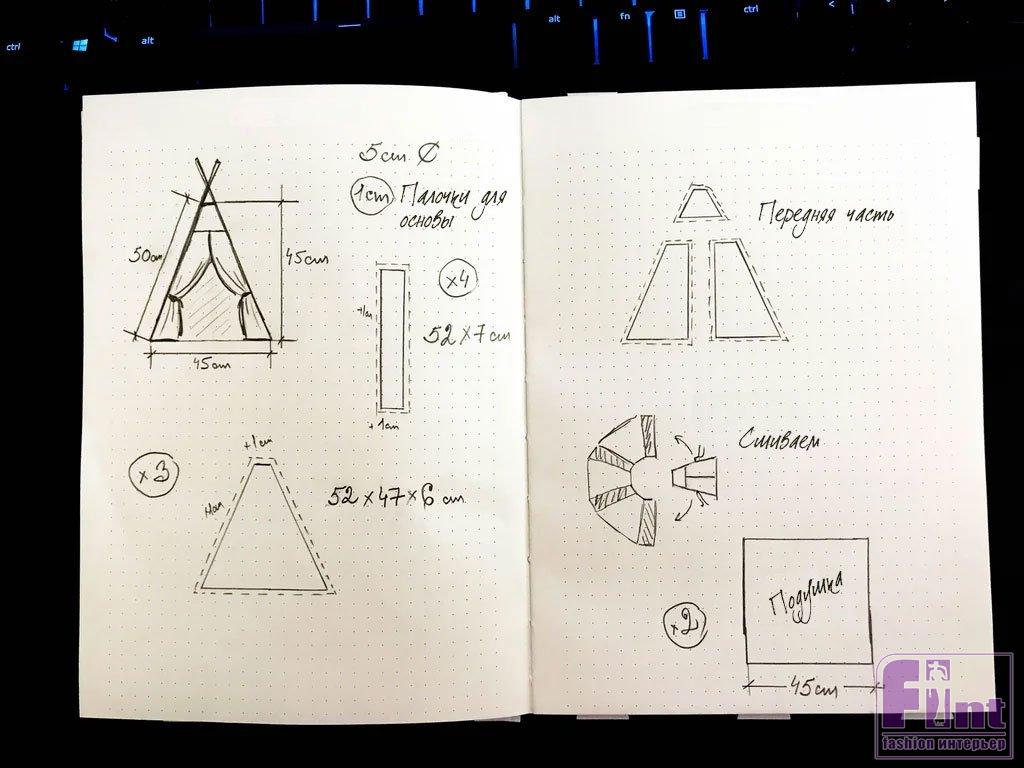 ctrl
alt
alt
fn
ctrl
<
5cm ∅
1cm Палочки для
основы
50cm
45cm
45cm
x4
+1cm
52x7cm
+1cm
x3
+1cm
+1cm
52x47x6 cm
Передняя часть
Сшиваем
x2
Подушка
45cm
Flint
fashion интерьер